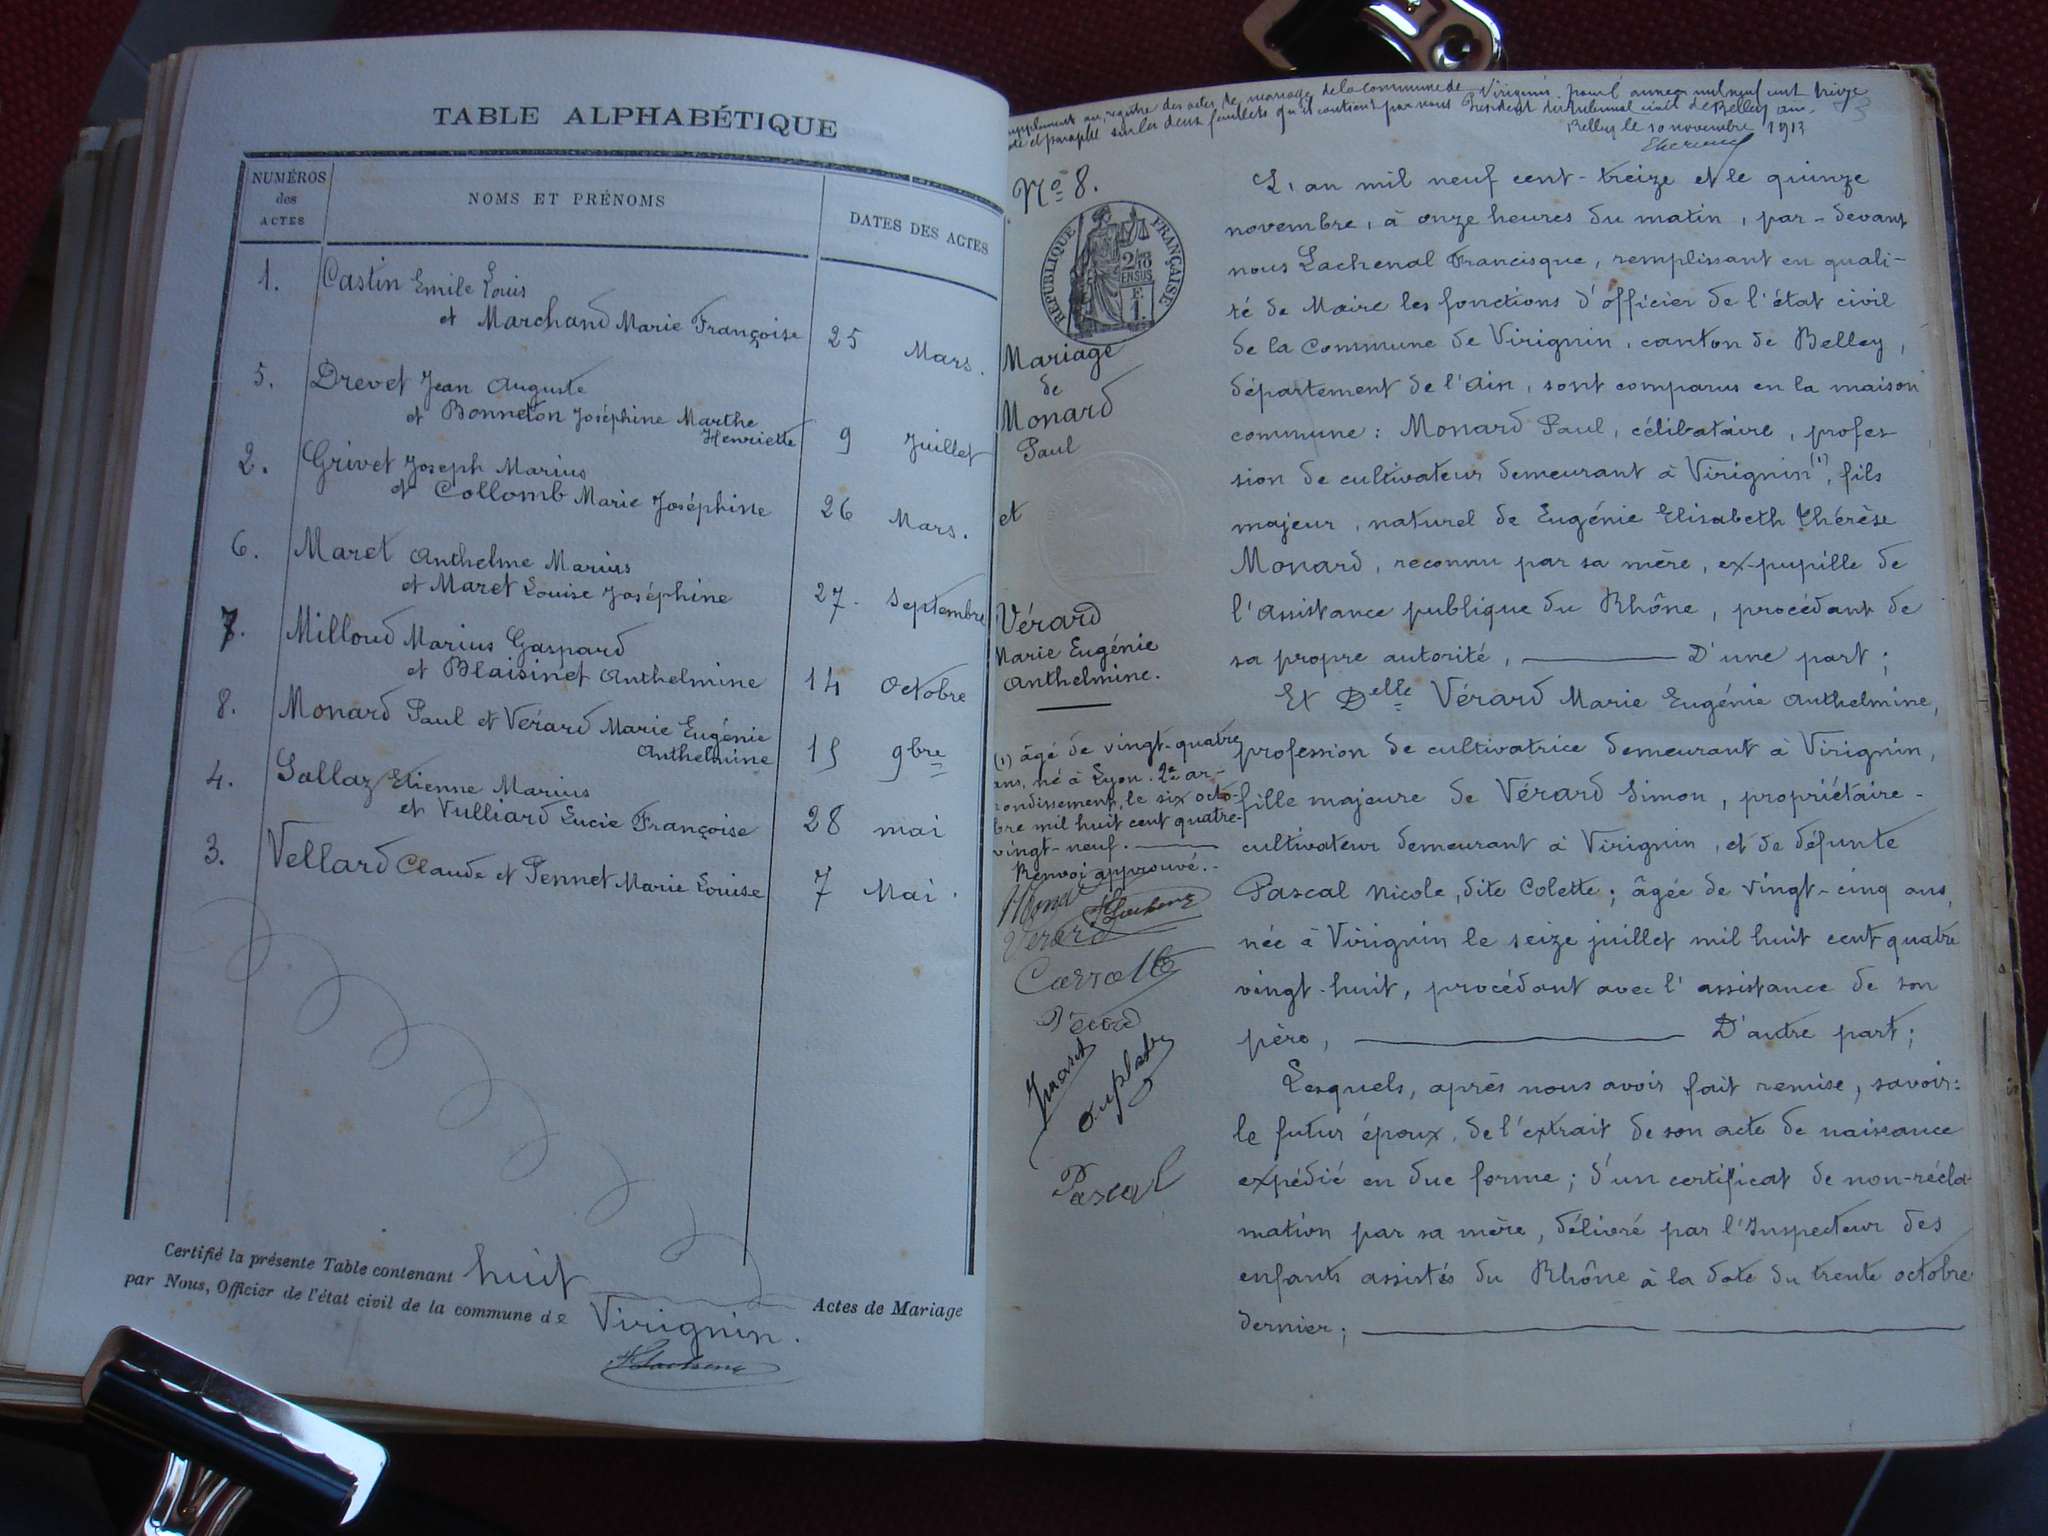 TABLE ALPHABÉTIQUE
NUMÉROS
des
ACTES
NOMS ET PRÉNOMS
DATES DES ACTES
1. Castin Emile Louis
et Marchand Marie Françoise 25 Mars.
5. Drevet Jean Auguste
et Bonneton Joséphine Marthe
Henriette 9 Juillet
2. Grivet Joseph Marius
et Collomb Marie Joséphine 26 Mars.
6. Maret Anthelme Marius
et Maret Louise Joséphine 27. Septembre
7. Milloud Marius Gaspard
et Blaisinet Anthelmine 14 Octobre
8. Monard Paul et Vérard Marie Eugénie
Anthelmine 15 9bre
4. Sallaz Etienne Marius
et Vulliard Lucie Françoise 28 mai
3. Vellard Claude et Pennet Marie Louise 7 Mai.
Certifié la présente Table contenant huit Actes de Mariage
par Nous, Officier de l'état civil de la commune de Virignin.
supplément au registre des actes de mariage de la commune de Virignin pour l'année mil neuf cent treize
et paraphé sur les deux feuillets qu'il contient par nous Président du tribunal civil de Belley
Belley le 10 novembre 1913
No 8.
RÉPUBLIQUE FRANÇAISE
Mariage
de
Monard
Paul
et
Vérard
Marie Eugénie
Anthelmine.
(1) âgé de vingt-quatre
ans, né à Lyon. 2e ar-
rondissement, le six octo-
bre mil huit cent quatre-
vingt-neuf.
Renvoi approuvé.
Vérard
Pascal
L'an mil neuf cent-treize et le quinze
novembre, à onze heures du matin, par-devant
nous Lachenal Francisque, remplissant en quali-
té de Maire les fonctions d'officier de l'état civil
de la Commune de Virignin, canton de Belley,
département de l'Ain, sont comparus en la maison
commune: Monard Paul, célibataire, profes
sion de cultivateur demeurant à Virignin(1), fils
majeur, naturel de Eugénie Elisabeth Thérèse
Monard, reconnu par sa mère, ex-pupille de
l'Assistance publique du Rhône, procédant de
sa propre autorité, D'une part;
Et Delle Vérard Marie Eugénie Anthelmine,
profession de cultivatrice demeurant à Virignin,
fille majeure de Vérard Simon, propriétaire-
cultivateur demeurant à Virignin, et de défunte
Pascal Nicole, dite Colette; âgée de vingt-cinq ans,
née à Virignin le seize juillet mil huit cent quatre
vingt-huit, procédant avec l'assistance de son
père, D'autre part;
Lesquels, après nous avoir fait remise, savoir:
le futur époux, de l'extrait de son acte de naissance
expédié en due forme; d'un certificat de non-récla-
mation par sa mère, délivré par l'Inspecteur des
enfants assistés du Rhône à la date du trente octobre
dernier;